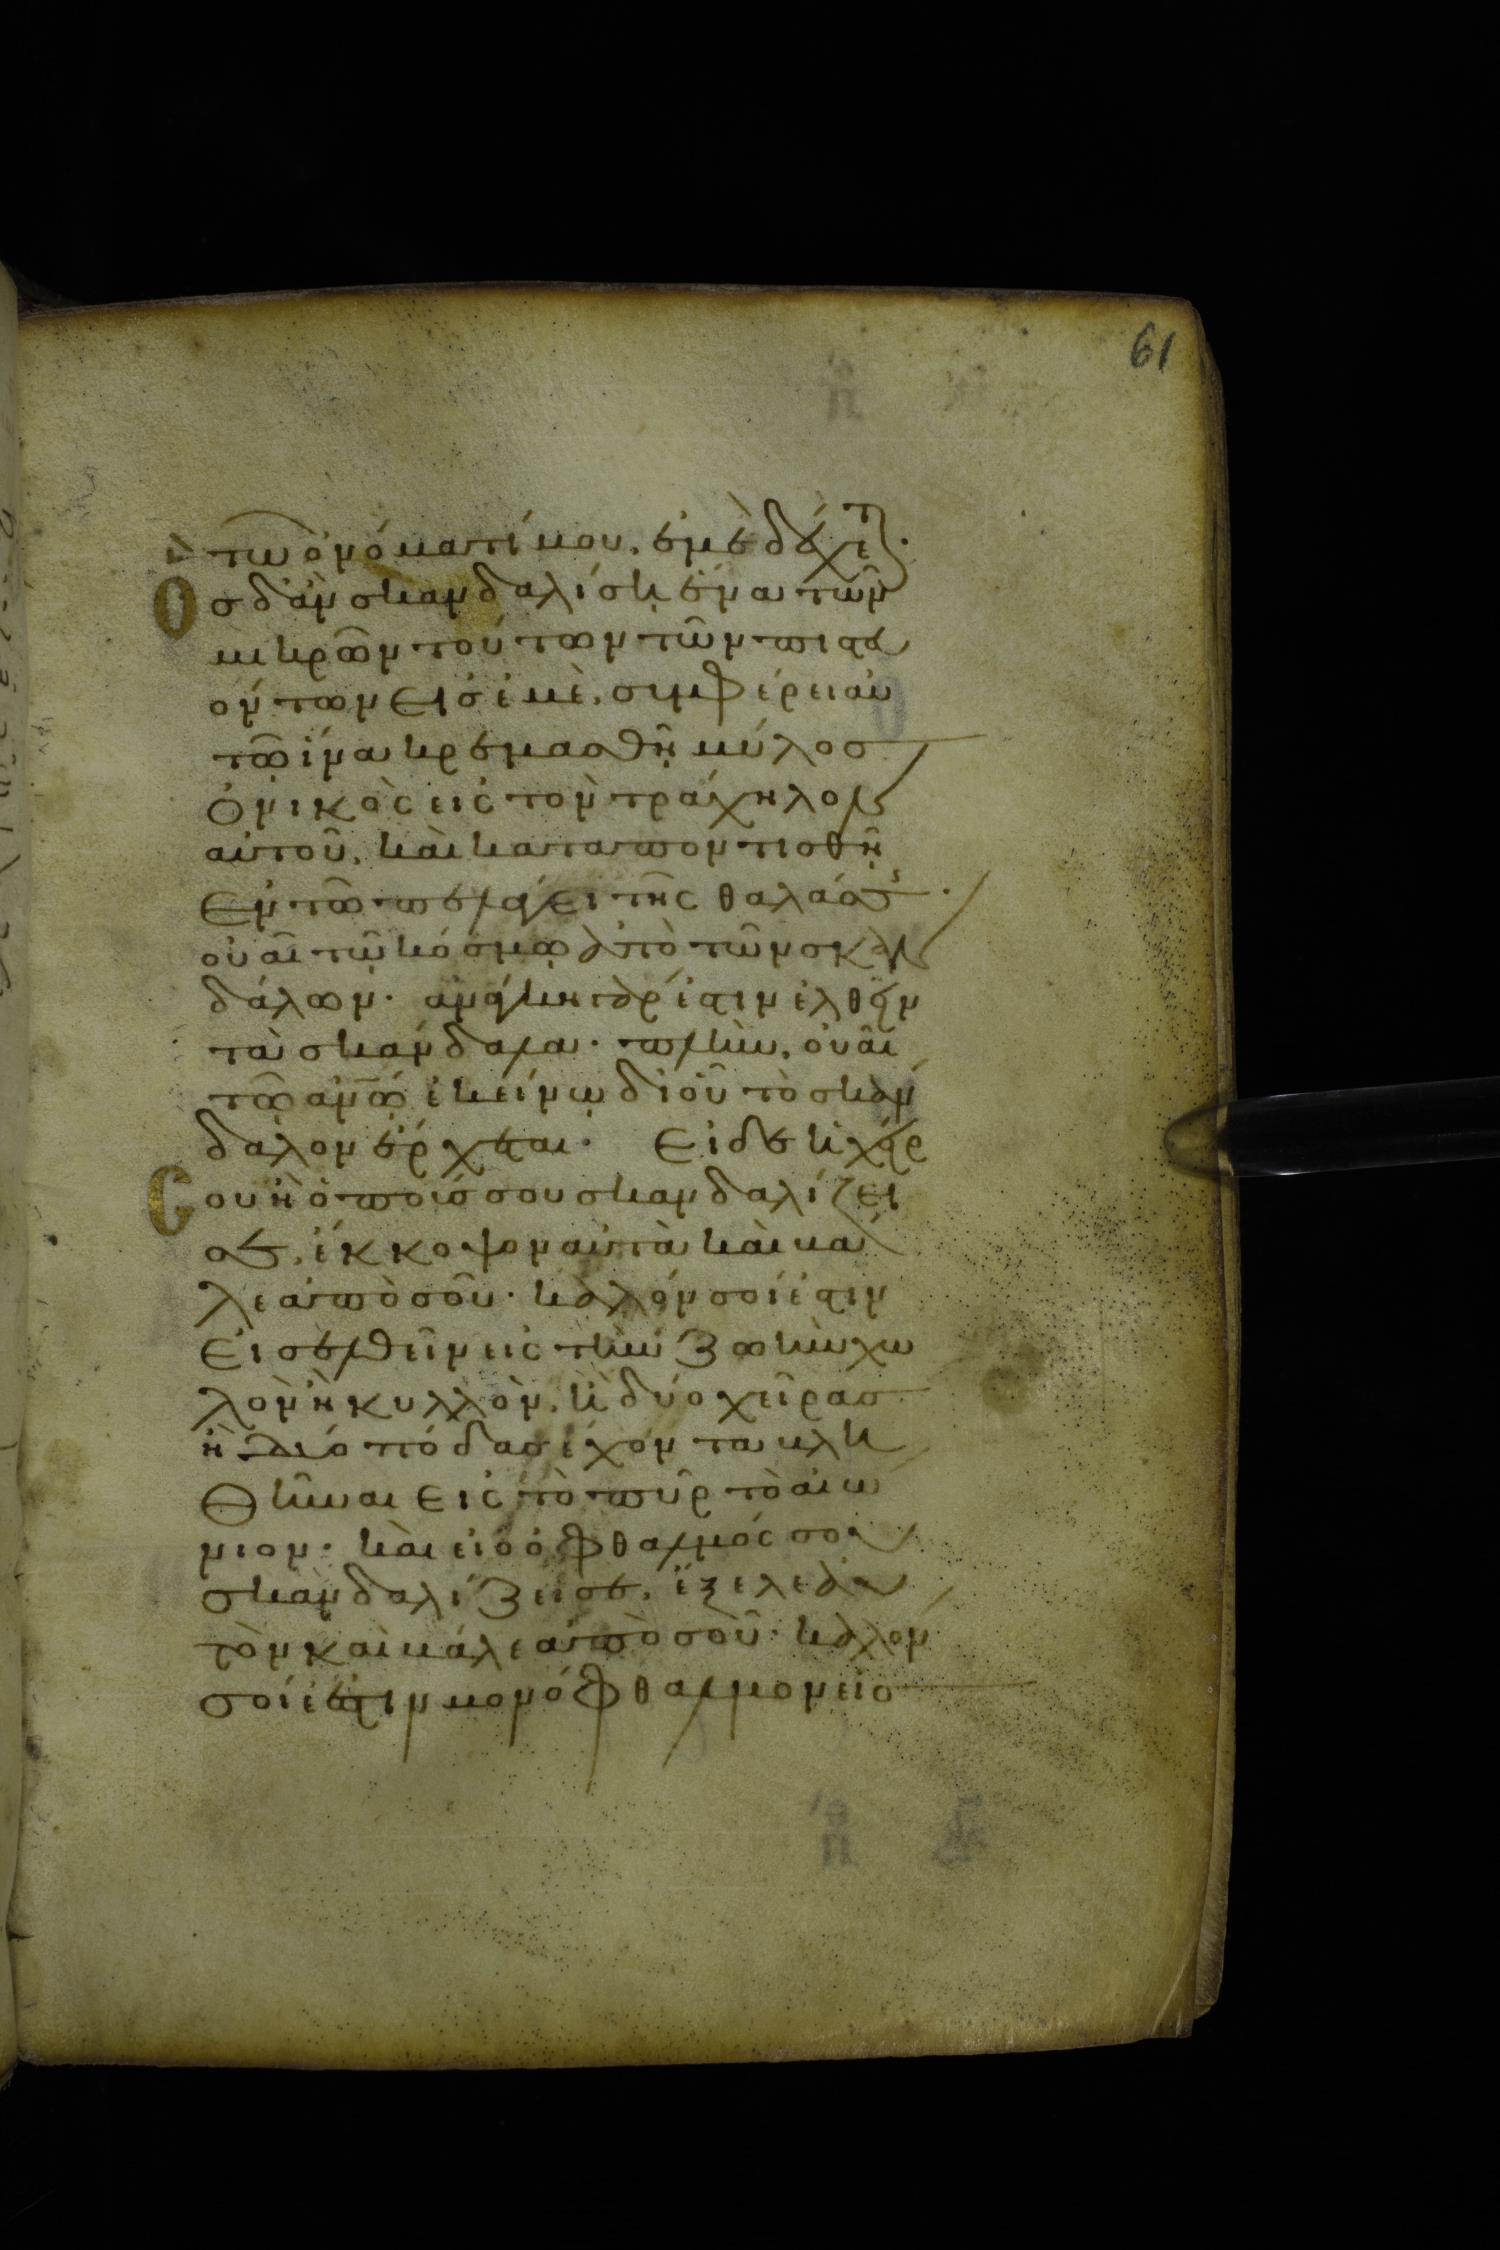 61
τῶ ὀνόματί μου, ἐμὲ δέχετ
Ὃσ δἂν σκανδαλίση ἕνα τῶν
μικρῶν τούτων τῶν πιστευ
όντων εἰσ ἐμὲ, συμφέρει αὐ
τῶ ἵνα κρεμασθῆ μύλοσ
ὀνικὸς εἰς τὸν τράχηλον
αὐτοῦ, καὶ καταποντισθῆ
ἐν τῶ πελάγει τῆς θαλάσσησ·
οὐαὶ τῶ κόσμω ἀπὸ τῶν σκαν
δάλων· ἀνάγκη γάρ ἐστιν ἐλθεῖν
τὰ σκάνδαλα· πλὴν, οὐαὶ
τῶ ἀνω ἐκείνω δι οὗ τὸ σκάν
δαλον ἔρχεται· Εἰ δε ἡ χείρ
σου ἢ ὁ ποῦσ σου σκανδαλίζει
σε, ἔκκοψον αὐτὰ καὶ βά
λε ἀπὸ σοῦ· καλόν σοί ἐστιν
εἰσελθεῖν εἰς τὴν ζωὴν χω
λὸν ἢ κυλλὸν, ἢ δύο χεῖρασ
ἢ δύο πόδασ ἔχοντα βλη
θῆναι εἰς τὸ πῦρ τὸ αἰώ
νιον· καὶ εἰ ὁ ὀφθαλμός σου
σκανδαλίζει σε, ἔξελε αὐ
τὸν καὶ βάλε ἀπὸ σοῦ· καλόν
σοί ἐστιν μονόφθαλμον εἰσ